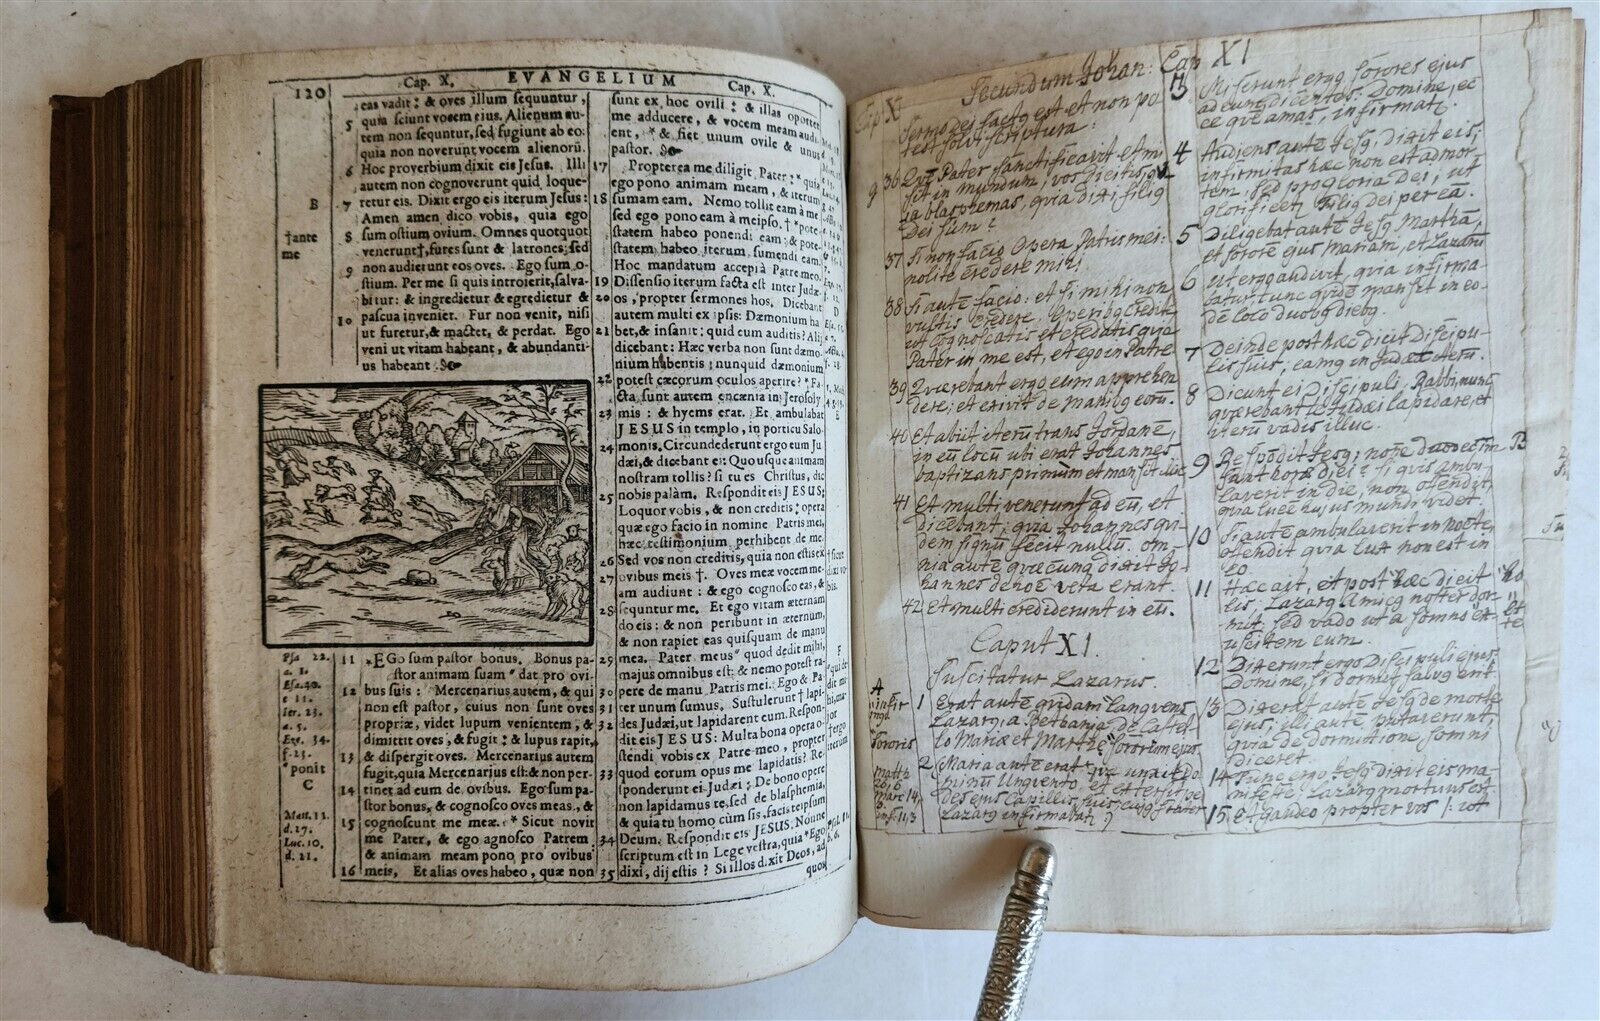 120
Cap. X. EVANGELIUM Cap. X.
eas vadit: & oves illum sequuntur,
5 quia sciunt vocem eius. Alienum au-
tem non sequntur, sed fugiunt ab eo:
quia non noverunt vocem alienorũ.
6 Hoc proverbium dixit eis Jesus. Illi
autem non cognoverunt quid loque-
B 7 retur eis. Dixit ergo eis iterum Jesus:
Amen amen dico vobis, quia ego
†ante 8 sum ostium ovium. Omnes quotquot
me venerunt†, fures sunt & latrones; sed
9 non audierunt eos oves. Ego sum o-
stium. Per me si quis introierit, salva-
bitur: & ingredietur & egredietur &
10 pascua inveniet. Fur non venit, nisi
ut furetur, & mactet, & perdat. Ego
veni ut vitam habeant, & abundanti-
us habeant.
Psa. 22. 11 *EGo sum pastor bonus. Bonus pa-
a. 1. stor animam suam * dat pro ovi-
Esa. 40. 12 bus suis: Mercenarius autem, & qui
c 11. non est pastor, cuius non sunt oves
Ier. 23. propriæ, videt lupum venientem, &
a. 5. dimittit oves, & fugit: & lupus rapit,
Eze. 34. 13 & dispergit oves. Mercenarius autem
f. 23. fugit, quia Mercenarius est: & non per-
*ponit 14 tinet ad eum de ovibus. Ego sum pa-
C stor bonus, & cognosco oves meas, &
Matt. 11. 15 cognoscunt me meæ. * Sicut novit
d. 27. me Pater, & ego agnosco Patrem:
Luc. 10. & animam meam pono pro ovibus
d. 21. 16 meis, Et alias oves habeo, quæ non
sunt ex hoc ovili: & illas oportet
me adducere, & vocem meam audi
ent, * & fiet unum ovile & unus
pastor.
17 Propterea me diligit Pater: * quia
ego pono animam meam, & iterum
18 sumam eam. Nemo tollit eam à me
sed ego pono eam à meipso. † * pote-
statem habeo ponendi eam: & pote-
statem habeo iterum sumendi eam.
Hoc mandatum accepi à Patre meo.
19 Dissensio iterum facta est inter Judæ
20 os, propter sermones hos. Dicebant
autem multi ex ipsis: Dæmonium ha
21 bet, & insanit: quid eum auditis? Alij
dicebant: Hæc verba non sunt dæmo-
nium habentis: nunquid dæmonium
22 potest cæcorum oculos aperire? * Fa-
cta sunt autem encænia in Jerosoly
23 mis: & hyems erat. Et ambulabat
JESUS in templo, in porticu Salo-
24 monis. Circundederunt ergo eum Ju
dæi, & dicebant ei: Quousque animam
nostram tollis? si tu es Christus, dic
25 nobis palàm. Respondit eis JESUS:
Loquor vobis, & non creditis: opera
quæ ego facio in nomine Patris mei,
hæc testimonium perhibent de me.
26 Sed vos non creditis, quia non estis ex
27 ovibus meis †. Oves meæ vocem me-
am audiunt: & ego cognosco eas, &
28 sequuntur me. Et ego vitam æternam
do eis: & non peribunt in æternum,
& non rapiet eas quisquam de manu
29 mea. Pater meus * quod dedit mihi,
majus omnibus est: & nemo potest ra-
30 pere de manu Patris mei. Ego & Pa-
31 ter unum sumus. Sustulerunt † lapi-
32 des Judæi, ut lapidarent eum. Respon-
dit eis JESUS: Multa bona opera o-
stendi vobis ex Patre meo, propter
33 quod eorum opus me lapidatis? Re-
sponderunt ei Judæi: De bono opere
non lapidamus te, sed de blasphemia,
& quia tu homo cùm sis, facis teipsum
34 Deum. Respondit eis JESUS: Nonne
scriptum est in Lege vestra, quia * Ego
35 dixi, dij estis? Si illos dixit Deos, ad
quos
Cap X Secundum Johan: Cap XI
sermo dei factg est et non po
test solvi scriptura:
g 36 Quē Pater sanctificavit et mi
sit in mundum, vos dicitis,
ia blasphemas, quia dixi filig
Dei sum?
37 Si non facio Opera Patris mei:
nolite credere mihi
38 Si autē facio: et si mihi non
vultis credere, operibg credite
ut cognoscatis et credatis quia
Pater in me est, et ego in Patre
39 Qværebant ergo eum apprehen
dere; et exivit de manibg eorū.
40 Et abiit iterū trans Jordanē,
in eū locū ubi erat Johannes
baptizans primum et mansit illic
41 Et multi venerunt ad eū, et
dicebant; quia Johannes qvi-
dem signū fecit nullū. om-
nia autē qvæcunq dixit Jo-
hannes de hoc vera erant
42 Et multi crediderunt in eū.
Caput XI.
Suscitatur Lazarus.
A 1 Erat autē qvidam langvens
Lazarg, a Bethania de Castel-
lo Mariæ et Marthē sororis ejus
sororis 2 Maria autē erat qvæ unxit Do
minū Ungvento, et extersit pe-
des ejus capillis suis, cujg frater
Lazarg infirmabatr
3 Miserunt ergo sorores ejus
ad eum dicentes: Domine, ec
ce quē amas, infirmatr.
4 Audiens autē Jesg, dixit eis;
infirmitas hæc non est ad mor-
tem, sed pro gloria Dei, ut
glorificetr filig dei per eā.
5 Diligebat autē Jesg Marthā,
et sororē ejus Mariam, et Lazarū
6 Ut ergo audivit, quia infirma
batur, tunc qvidē mansit in eo-
dē loco duobg diebg.
7 Deinde post hæc dicit discipu-
lis suis, eamg in Judæā iterū.
8 Dicunt ei Discipuli, Rabbi, nunc
qværebant te Judæi lapidare, et
iterū vadis illuc.
9 Respōdit Jesg; nōne duodecim B
sunt horæ diei? si quis ambu
laverit in die, non offendit,
quia lucē hujus mundi videt
10 Si autē ambulaverit in nocte,
offendit quia lux non est in
eo.
11 Hæc ait, et post hæc dicit
eis, Lazarg Amicg noster dor-
mit: sed vado ut a somno ex-
usitem eum.
12 Dixerunt ergo Discipuli ejus,
Domine, si dormit, salvg erit
13 Dixerat autē Jesg de morte
ejus, illi autē putaverunt,
quia de dormitione somni
diceret.
14 Tunc ergo Jesg dixit eis ma-
nifestē: Lazarg mortuus est.
15 Et gaudeo propter vos